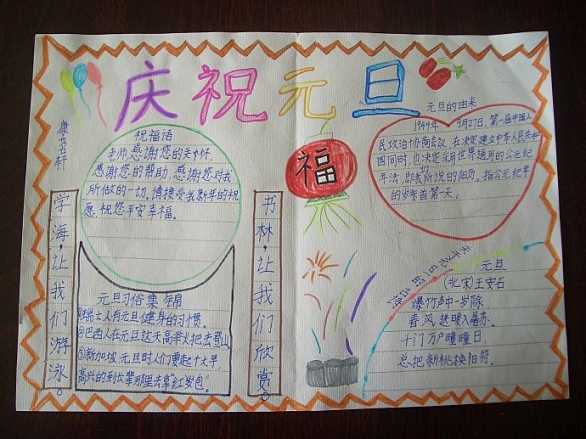 庆祝元旦
祝福语
老师,感谢您的关怀,
感谢您的帮助,感谢您对我
所做的一切,请接受我新年的祝
愿,祝您平安幸福。
学海·让我们游泳。
元旦习俗集
瑞士人有元旦健身的习惯。
②巴西人在元旦这天高举火把去登山
③新加坡 元旦时人们要起个大早,
高兴的到长辈那里去拿红发包。
书林·让我们欣赏。
福
元旦的由来
1949年 9月27日,第一届中国人
民政治协商会议,在决定建立中华人民共和
国同时,也决定采用世界通用的公元纪
年法,即我所说的阳历。指公元纪年
的岁首第一天。
关于元旦的
元旦
(北宋)王安石
爆竹声中一岁除
春风送暖入屠苏。
千门万户曈曈日
总把新桃换旧符。